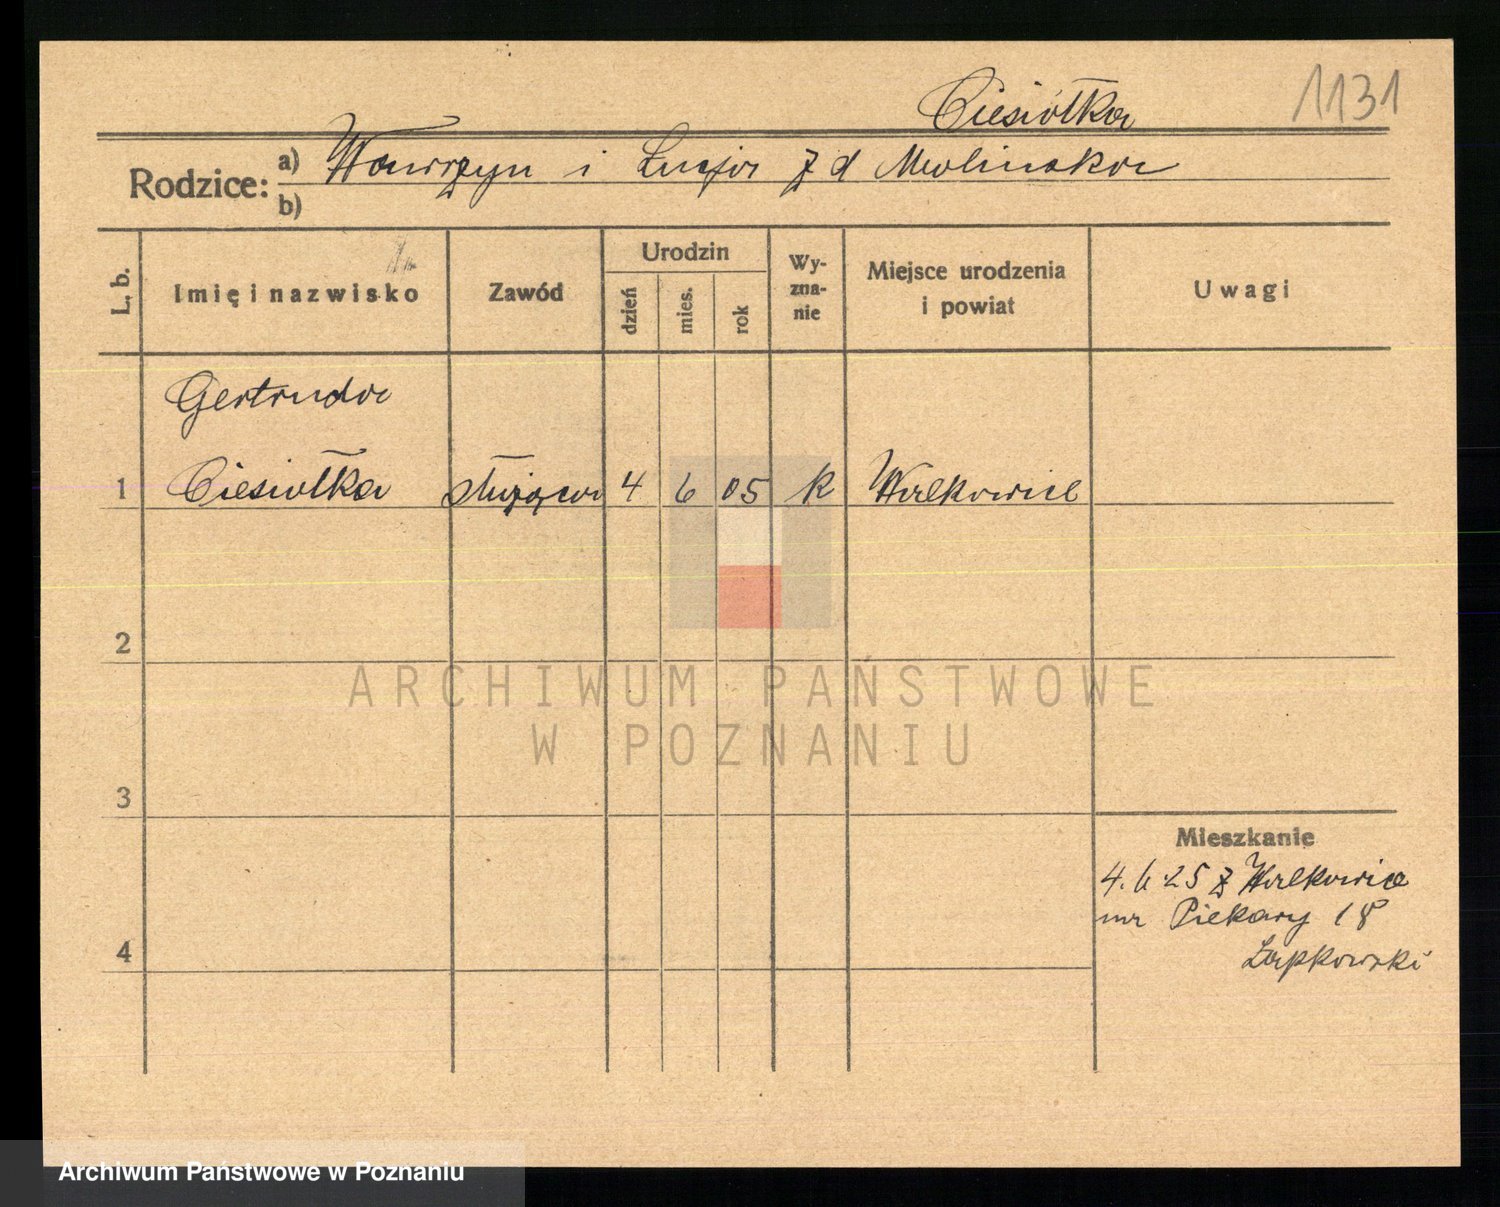 Ciesiółka 1131
Rodzice: a) Wawrzyn i Łucja z d Molinska
b)
L. b. Imię i nazwisko Zawód Urodzin dzień mies. rok Wy-zna-nie Miejsce urodzenia i powiat Uwagi
Gertruda
1 Ciesiołka służąca 4 6 05 k Walkowice
2
ARCHIWUM PAŃSTWOWE
W POZNANIU
3
Mieszkanie
4. 6. 25 z Walkowice
nr Piekary 18
4 Łapkowski
Archiwum Państwowe w Poznaniu